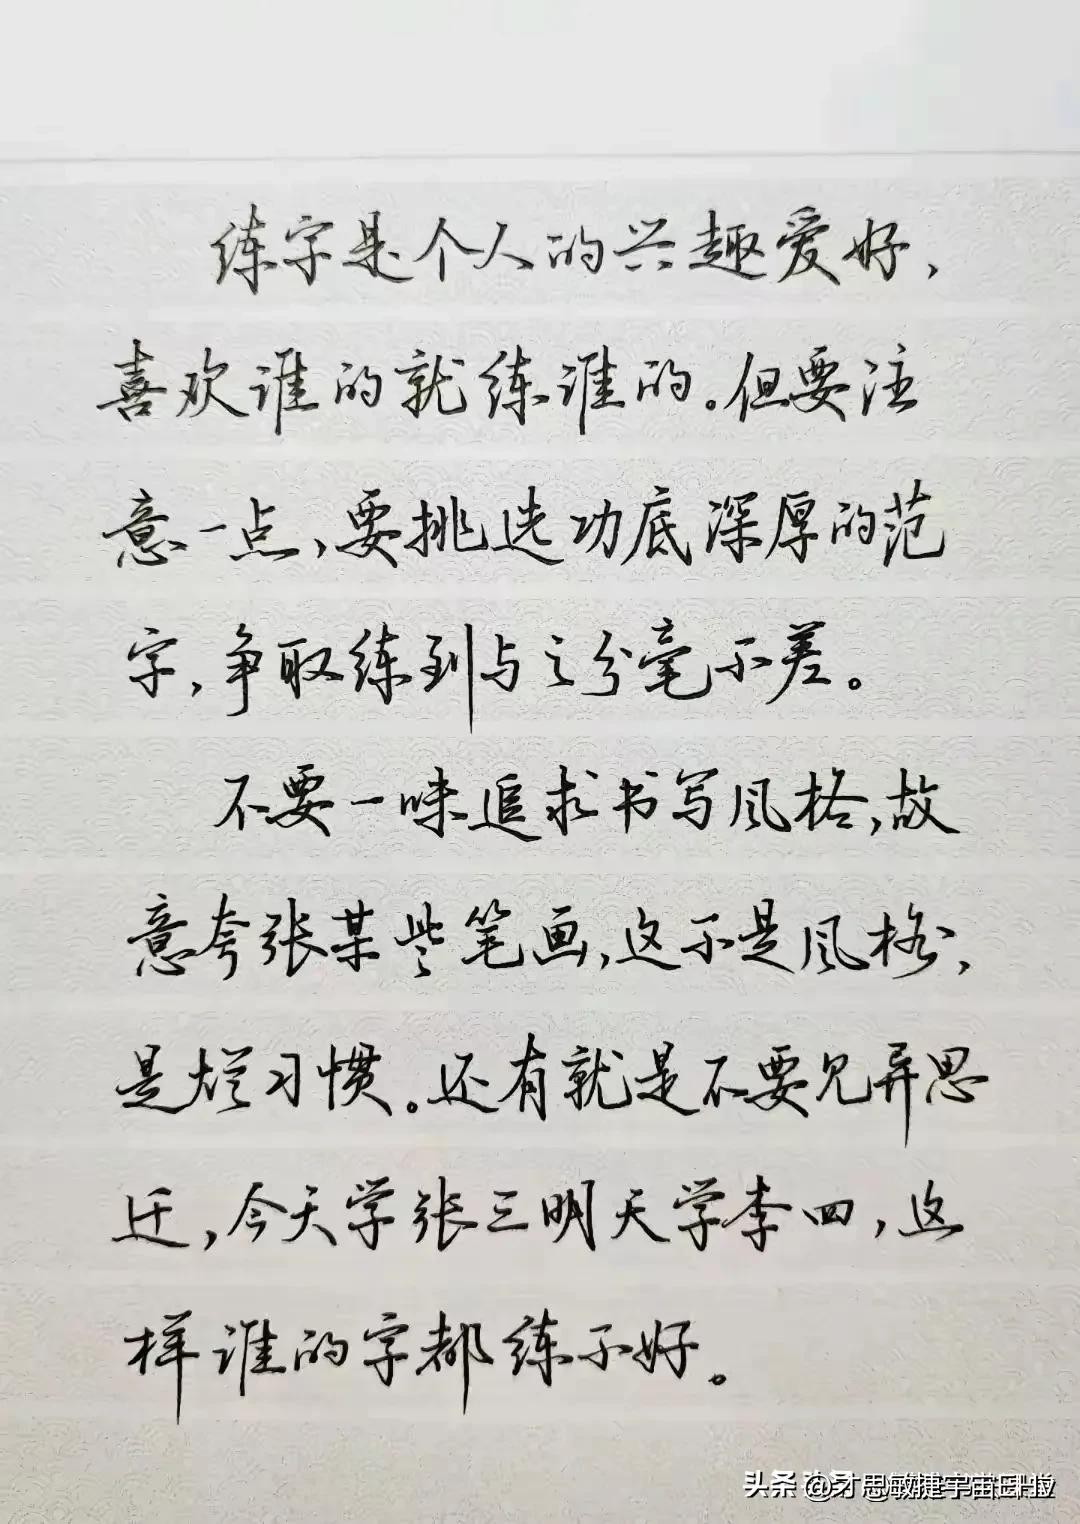 练字是个人的兴趣爱好，
喜欢谁的就练谁的。但要注
意一点，要挑选功底深厚的范
字，争取练到与之分毫不差。
不要一味追求书写风格，故
意夸张某些笔画，这不是风格，
是烂习惯。还有就是不要见异思
迁，今天学张三明天学李四，这
样谁的字都练不好。
头条 @才思敏捷宇宙